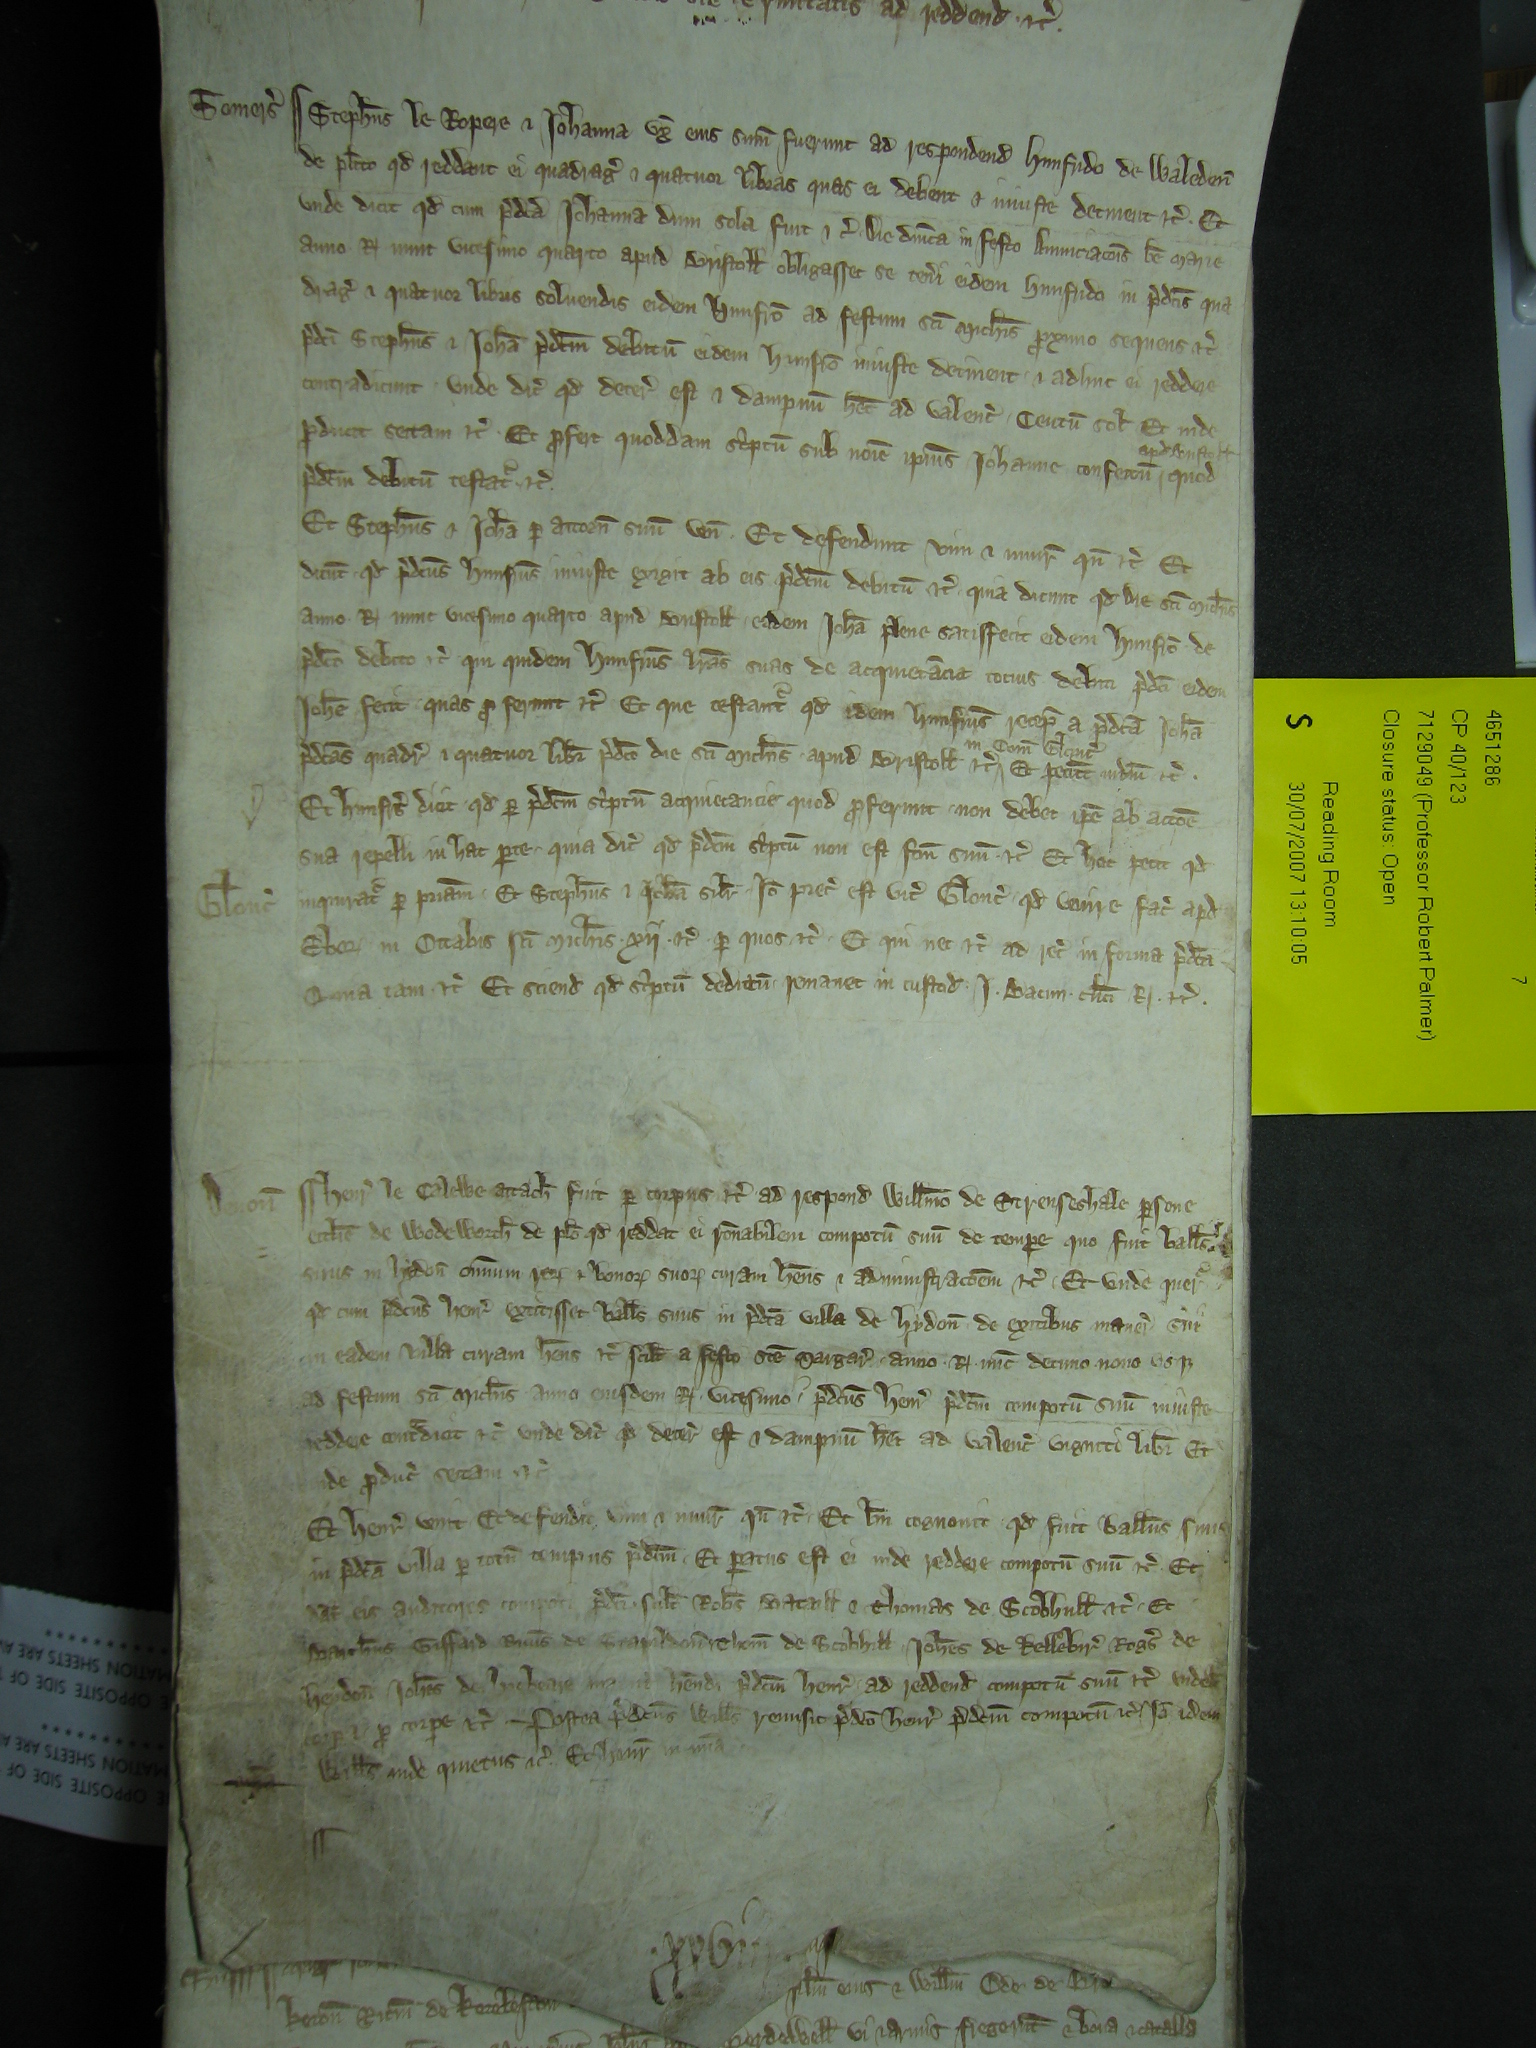 ad reddend · etc̃.
Somers̃ Stephñs le Ropere ⁊ Joħanna vx̃ eius sum̃ fuerunt ad respondend Hunfrido de Waledeñ
de pl̃ito qd̃ reddant ei quadrag̃ ⁊ quatuor libras quas ei debent ⁊ iniuste detinent etc̃ · Et
vnde dicit qd̃ cum p̃dc̃a Joħanna dum sola fuit ⁊ c̃ · die dñica in festo Annunciac̃õis bẽ Marie
anno · R · nunc vicesimo quarto apud Bristoll̃ obligasset se teñi eidem Hunfrido in p̃dc̃is qua
drag̃ ⁊ quatuor libris soluendis eidem Hunfr̃o ad festum sc̃i Micħis proximo sequens etc̃
p̃dc̃i Stephñs ⁊ Joħa p̃dc̃m debitũ eidem Hunfr̃o iniuste detinent · ⁊ adhuc ei reddere
contradicunt · vnde dic̃ qd̃ deter̃ est ⁊ dampnũ ħet ad valenc̃ · Centũ sol̃ Et inde
p̃ducit sectam etc̃ · Et profert quoddam sc̃ptũ sub noĩe ip̃ius Joħanne confectũ apd̃ Bristoll̃ quod
p̃dc̃m debitũ testat̃ · etc̃
Et Stephñs ⁊ Joħa p attorñ suũ veñ · Et defendunt vim ⁊ iniur̃ qñ etc̃ Et
dicũt · qd̃ p̃dc̃us Hunfrĩs iniuste exigit ab eis p̃dc̃m debitũ etc̃ · quia dicunt qd̃ die sc̃i Micħis
anno · R · nunc vicesimo quarto apud Bristoll̃ · eadem Joħa plene satisfecit eidem Hunfr̃o · de
p̃dc̃o debito etc̃ qui quidem Hunfrĩs lr̃as suas de acquietãcia tocius debiti p̃dc̃i eidem
Joħe fecit · quas proferunt etc̃ Et que testant̃ qd̃ idem Hunfrĩs recep̃ a p̃dc̃a Joħa
p̃dc̃as quadr̃ ⁊ quatuor libr̃ p̃dc̃o die sc̃i Micħis · apud Bristoll̃ in Com̃ Glouc̃ etc̃ · Et petũt iudm̃ etc̃ ·
Et Hunfrĩs dicit · qd̃ per p̃dc̃m sc̃ptũ acquietancie quod proferunt · non debet ip̃e ab acc̃oe
sua repelli in hac parte · quia dic̃ qd̃ p̃dc̃m sc̃ptũ non est fc̃m suũ · etc̃ Et hoc petit qd̃
Glouc̃ inquirat̃ p pr̃iam · Et Stephñs ⁊ Joħa sil̃r · Jõ prec̃ est vic̃ Glouc̃ · qd̃ venire fac̃ apd̃
Ebor̃ in Octabis sc̃i Micħis · xij · etc̃ · p quos etc̃ · Et qui nec etc̃ ad rec̃ in forma p̃dc̃a
Quia tam · etc̃ Et sciend qd̃ sc̃ptũ dedictũ remanet in custod̃ · J · Bacun · cl̃ici R · etc̃ ·
Deuoñ Henr̃ le Calewe attacħ fuit p corpus etc̃ ad respond̃ Willm̃o de Strenseshale persone
ecclĩe de Wodeworth̃ de pl̃o qd̃ reddat ei r̃onabilem compotũ suũ de tempore quo fuit ball̃s
suus in Hydoñ om̃ium rer̃ ⁊ bonor̃ suor̃ curam ħens ⁊ administrac̃oem etc̃ · Et vnde quer̃
qd̃ cum p̃dc̃us Henr̃ extitisset ball̃s suus in p̃dc̃a villa de Hydoñ · de exitibus maner̃ sui
in eadem villa curam ħens etc̃ scil̃t a festo sc̃e Margar̃ · anno · R · nũc decimo nono vsq̃
ad festum sc̃i Micħis anno eiusdem R · vicesimo · p̃dc̃us Henr̃ p̃dc̃m compotũ suũ iniuste
reddere contradicit etc̃ vnde dic̃ qd̃ deter̃ est ⁊ dampnũ ħet ad valenc̃ viginti libr̃ Et
inde produc̃ sectam etc̃
Et Henr̃ venit Et defendit vim ⁊ iniur̃ qñ etc̃ · Et bñ cognouit · qd̃ fuit ball̃us suus
in p̃dc̃a villa p totũ tempus p̃dc̃m · Et paratus est ei inde reddere compotũ suũ etc̃ · Et
dat̃ eis auditores compoti p̃dc̃i · scil̃t Rob̃s Batail̃l ⁊ Thomas de Scobhull̃ etc̃ · Et
Giffard de de Scobhill Joħes de Kellebir̃ Rog̃s de
Heydoñ Joħes de ħendi p̃dc̃m Henr̃ ad reddend̃ compotũ suũ etc̃
corp̃ ⁊ pro corpore etc̃ — Postea p̃dc̃us Will̃s remisit p̃dc̃o Henr̃ p̃dc̃m compotũ etc̃ Jõ idem
Will̃s inde quietus etc̃ · Et Henr̃ in mĩa
xxvij
filiũ eius ⁊ Willm̃ Ode de
Ricm̃ de
vi ⁊ armis fregerũt ⁊ bona ⁊ catalla
4651286
CP 40/123
7129049 (Professor Robert Palmer)
Closure status: Open
7
Reading Room
S 30/07/2007 13:10:05
OPPOSITE SIDE OF
MATION SHEETS ARE
OPPOSITE SIDE OF
MATION SHEETS ARE